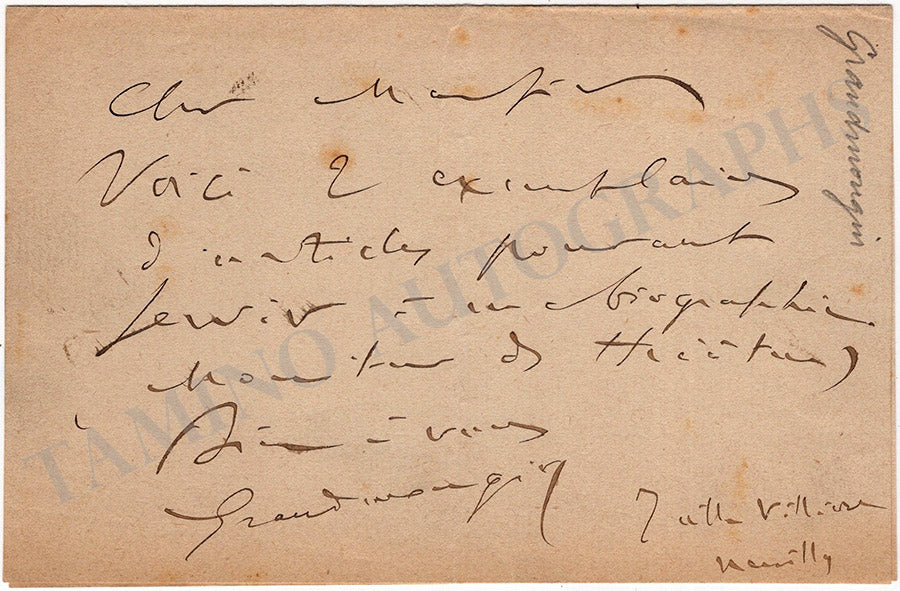 Cher Monsieur
Voici 2 exemplaires
d'articles pouvant
servir à une biographie.
Moniteur des Théâtres
Bien à vous
Grandmougin
7 Villa Villiers
Neuilly
Grandmougin
TAMINO AUTOGRAPHS